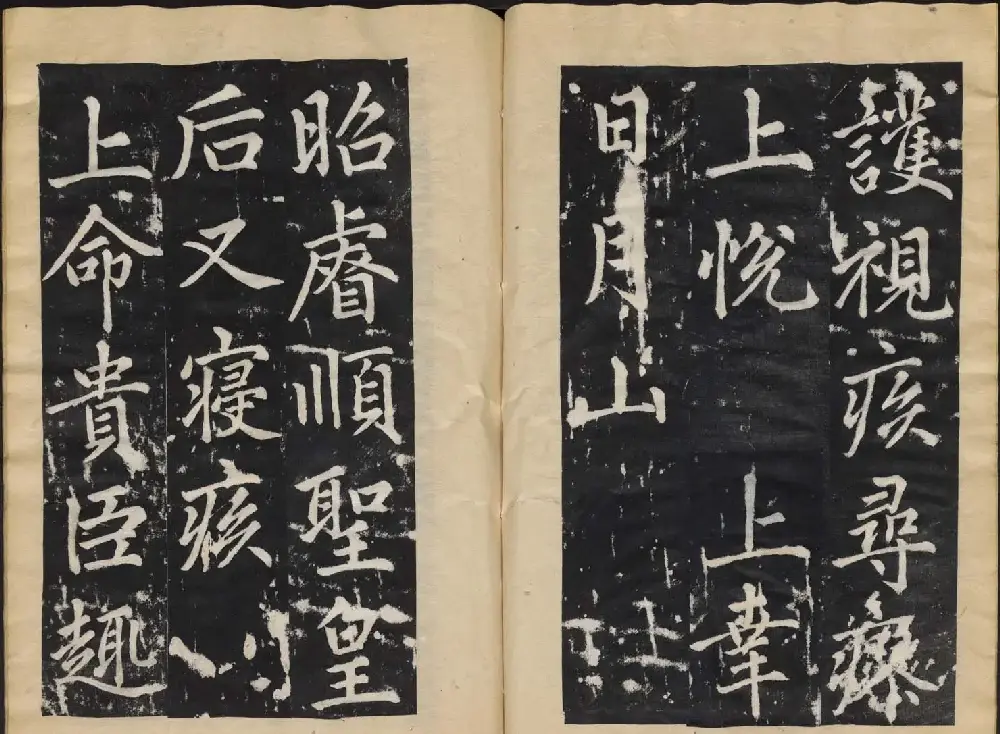 護視疾尋瘳
上悅 上幸
日月山
昭睿順聖皇
后又寢疾
上命貴臣趣